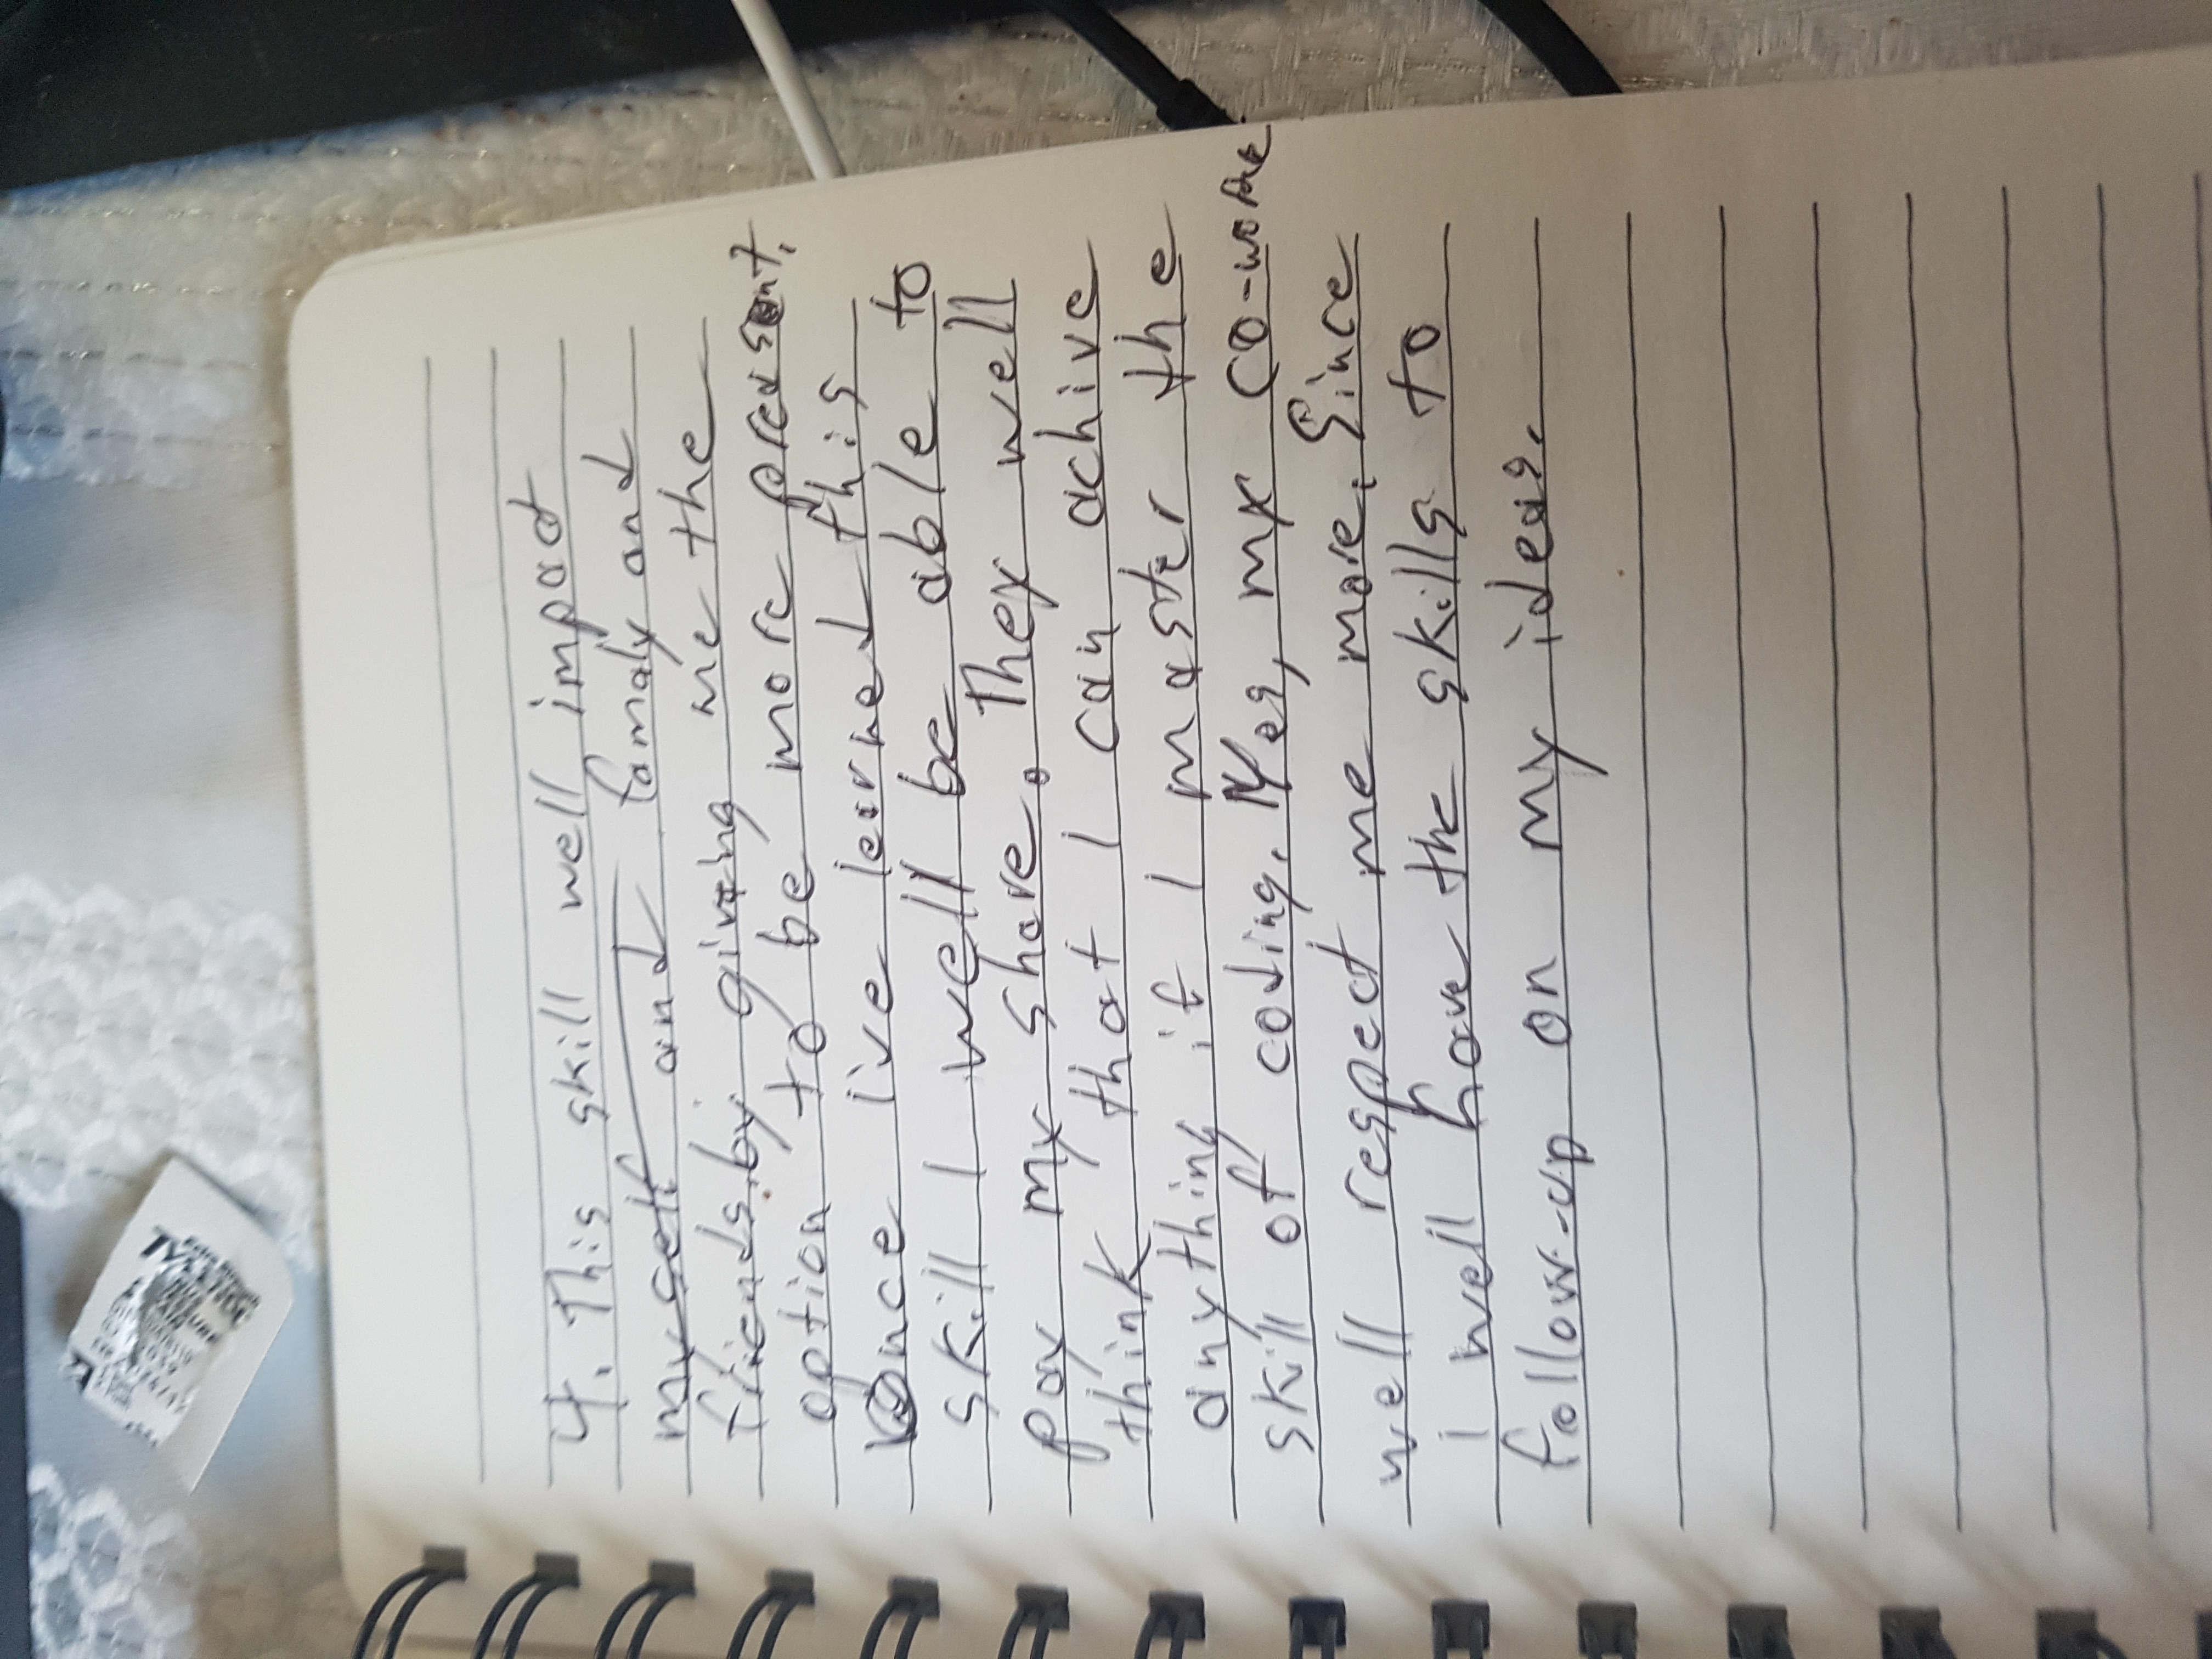 4. This skill well impact
myself and famaly and
friends.by giving me the
option to be more preasent.
once I've learned this
skill I well be able to
pay my share. They well
think that I can achive
anything if I master the
skill of coding. Yes, my co-worke
well respect me more. Since
i well have the skills to
follow-up on my ideas.